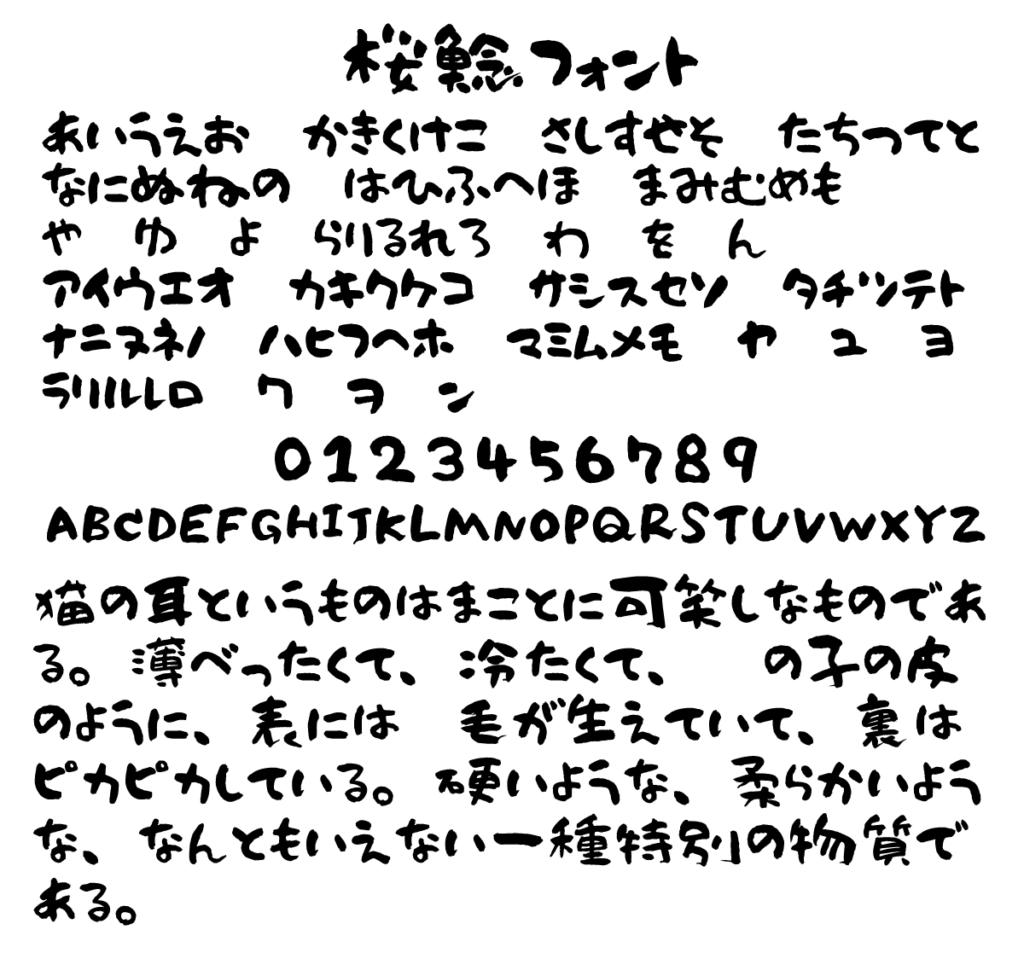 桜鯰フォント
あいうえお　かきくけこ　さしすせそ　たちつてと
なにぬねの　はひふへほ　まみむめも
や　ゆ　よ　らりるれろ　わ　を　ん
アイウエオ　カキクケコ　サシスセソ　タチツテト
ナニヌネノ　ハヒフヘホ　マミムメモ　ヤ　ユ　ヨ
ラリルレロ　ワ　ヲ　ン
0123456789
ABCDEFGHIJKLMNOPQRSTUVWXYZ
猫の耳というものはまことに可笑しなものであ
る。薄べったくて、冷たくて、　の子の皮
のように、表には　毛が生えていて、裏は
ピカピカしている。硬いような、柔らかいよう
な、なんともいえない一種特別の物質で
ある。